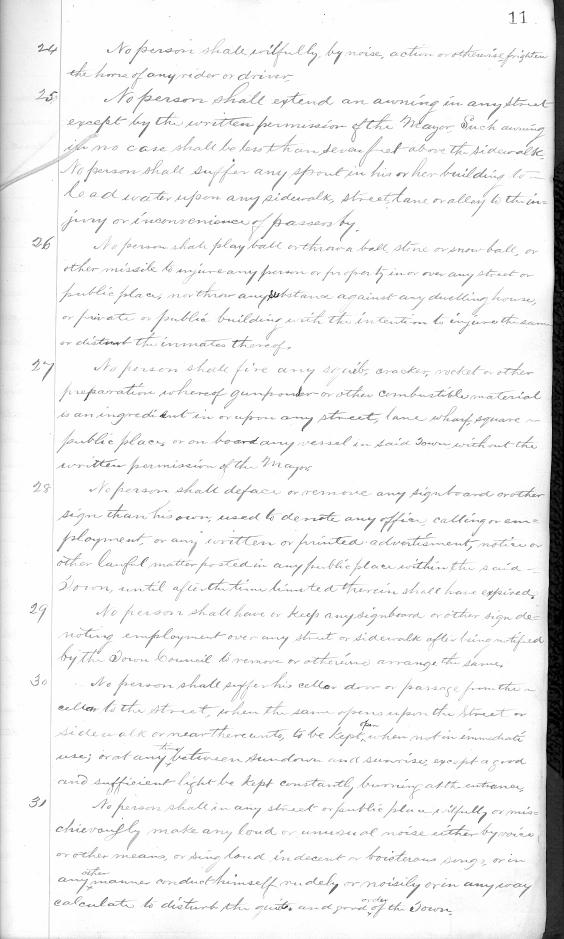 11
24 No person shall wilfully, by noise, action or otherwise, frighten
the horse of any rider or driver.
25 No person shall extend an awning in any street
except by the written permission of the Mayor. Such awning
in no case shall be less than seven feet above the sidewalk.
No person shall suffer any spout in his or her building to
lead water upon any sidewalk, street, lane or alley to the in=
jury or inconvenience of passers by.
26 No person shall play ball or throw a ball, stone or snow ball, or
other missile to injure any person or property in or over any street or
public place, nor throw any substance against any dwelling house,
or private or public building with the intention to injure the same
or disturb the inmates thereof.
27 No person shall fire any squib, cracker, rocket or other
preparation whereof gunpowder or other combustible material
is an ingredient in or upon any street, lane wharf, square
public place, or on board any vessel in said Town, without the
written permission of the Mayor
28 No person shall deface or remove any signboard or other
sign than his own, used to denote any office, calling or em=
ployment, or any written or printed advertisment, notice or
other lawful matter posted in any public place within the said
Town, until after the time limited therein shall have expired.
29 No person shall have or keep any signboard or other sign de=
noting employment over any street or sidewalk after being notified
by the Town Council to remove or otherwise arrange the same.
30 No person shall suffer his cellar door or passage from the
cellar to the street, when the same opens upon the Street or
sidewalk or near thereunto, to be kept open when not in immediate
use; or at any time between sundown and sunrise, except a good
and sufficient light be kept constantly burning at the entrance.
31 No person shall in any street or public place wilfully or mis=
chievously make any loud or unusual noise either by voice
or other means, or sing loud indecent or boisterous songs, or in
any other manner conduct himself rudely or noisily or in any way
calculate to disturb the quiet and good order of the Town.